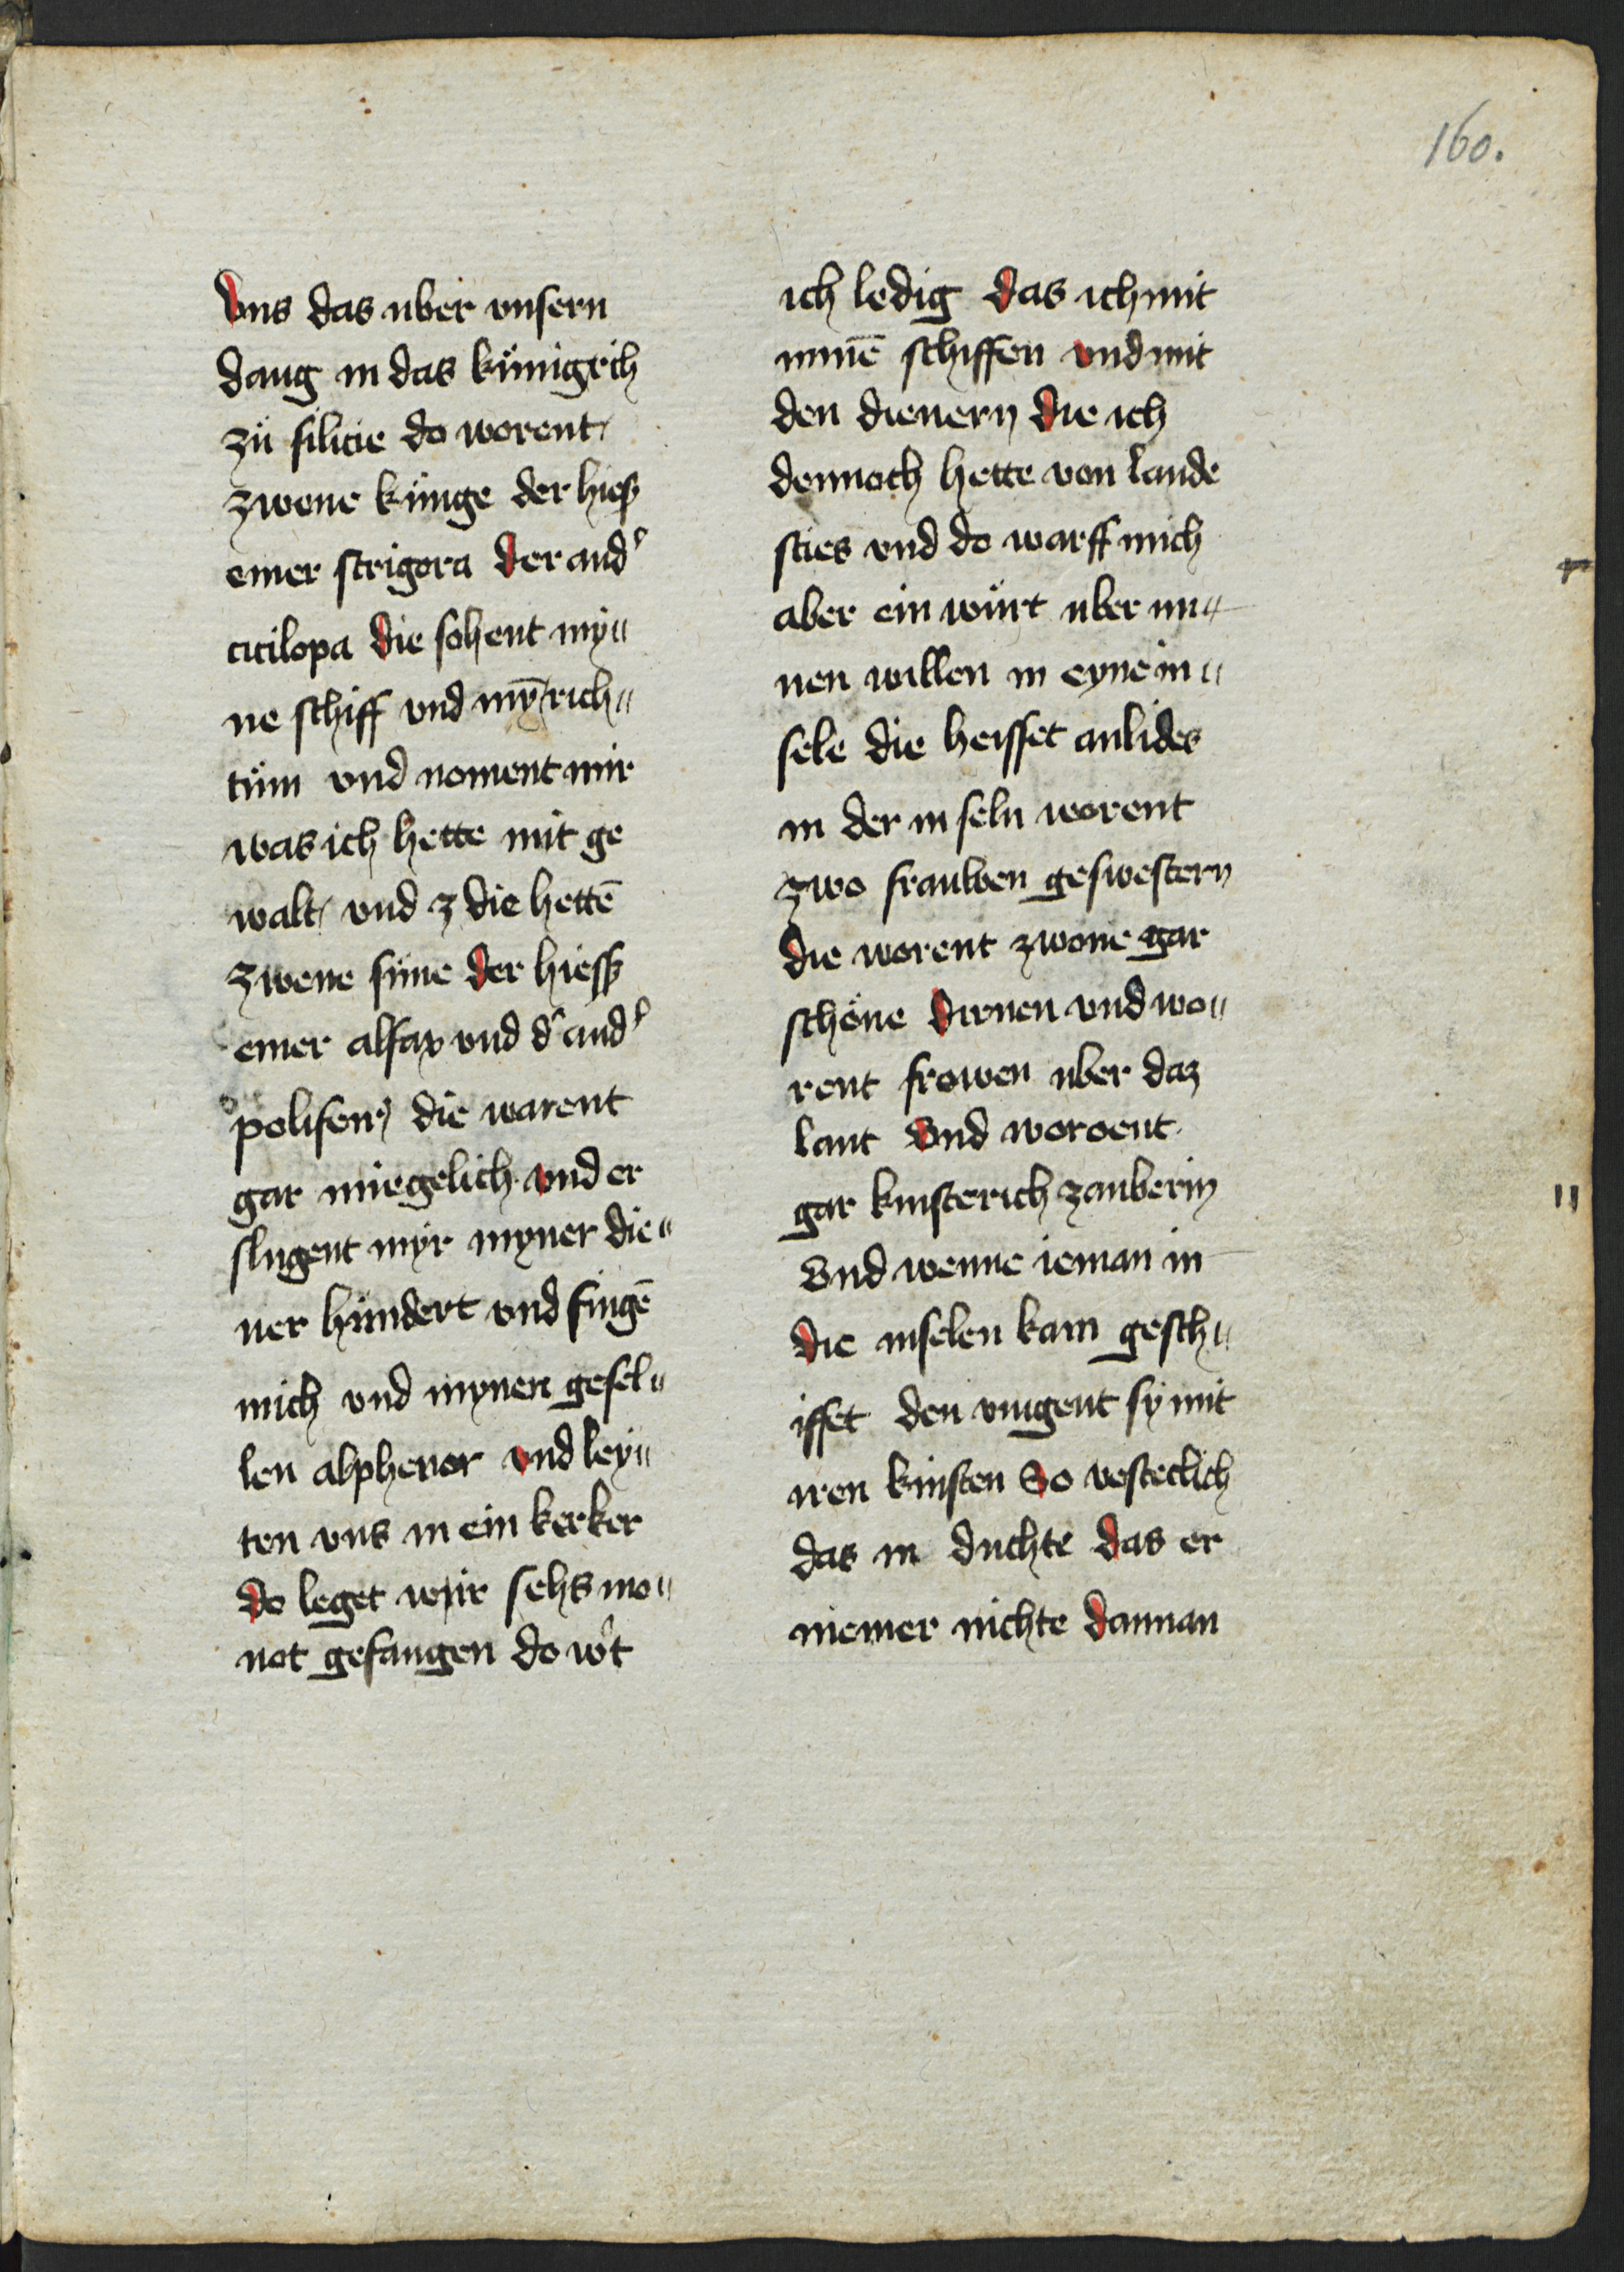 160.
vns das uber vnsern
dang in das künigrich
zü silicie do worent
zwene künge der hieß
einer strigora der and'
cicilopa die sohent my„
ne schiff vnd mȳ rich„
tüm vnd noment mir
was ich hette mit ge
walt vnd z die hettē
zwene süne der hiess
einer alfax vnd d' and'
polifen die warent
gar mürgelich vnd er
slugent myr myner die„
ner hündert vnd fingē
mich vnd mynen gesel„
len alphenor vnd ley„
ten vns in ein kerker
do leget wir sehs mo„
not gefangen do w't
ich ledig das ich mit
minē schiffen vnd mit
den dienern die ich
dennoch hette von lande
sties vnd do warff mich
aber ein würt uber mi„
nen willen in eyne in„
sele die heisset aulides
in der inseln worent
zwo frauwen geswestern
die worent zwone gar
schöne dirnen vnd wo„
rent frowen uber daz
lant vnd woroent
gar kunsterich zauberin
vnd wenne ieman in
die inselen kam gesch„
iffet den vingent sy mit
iren künsten So vesteclich
das in duchte das er
niemer nichte dannan